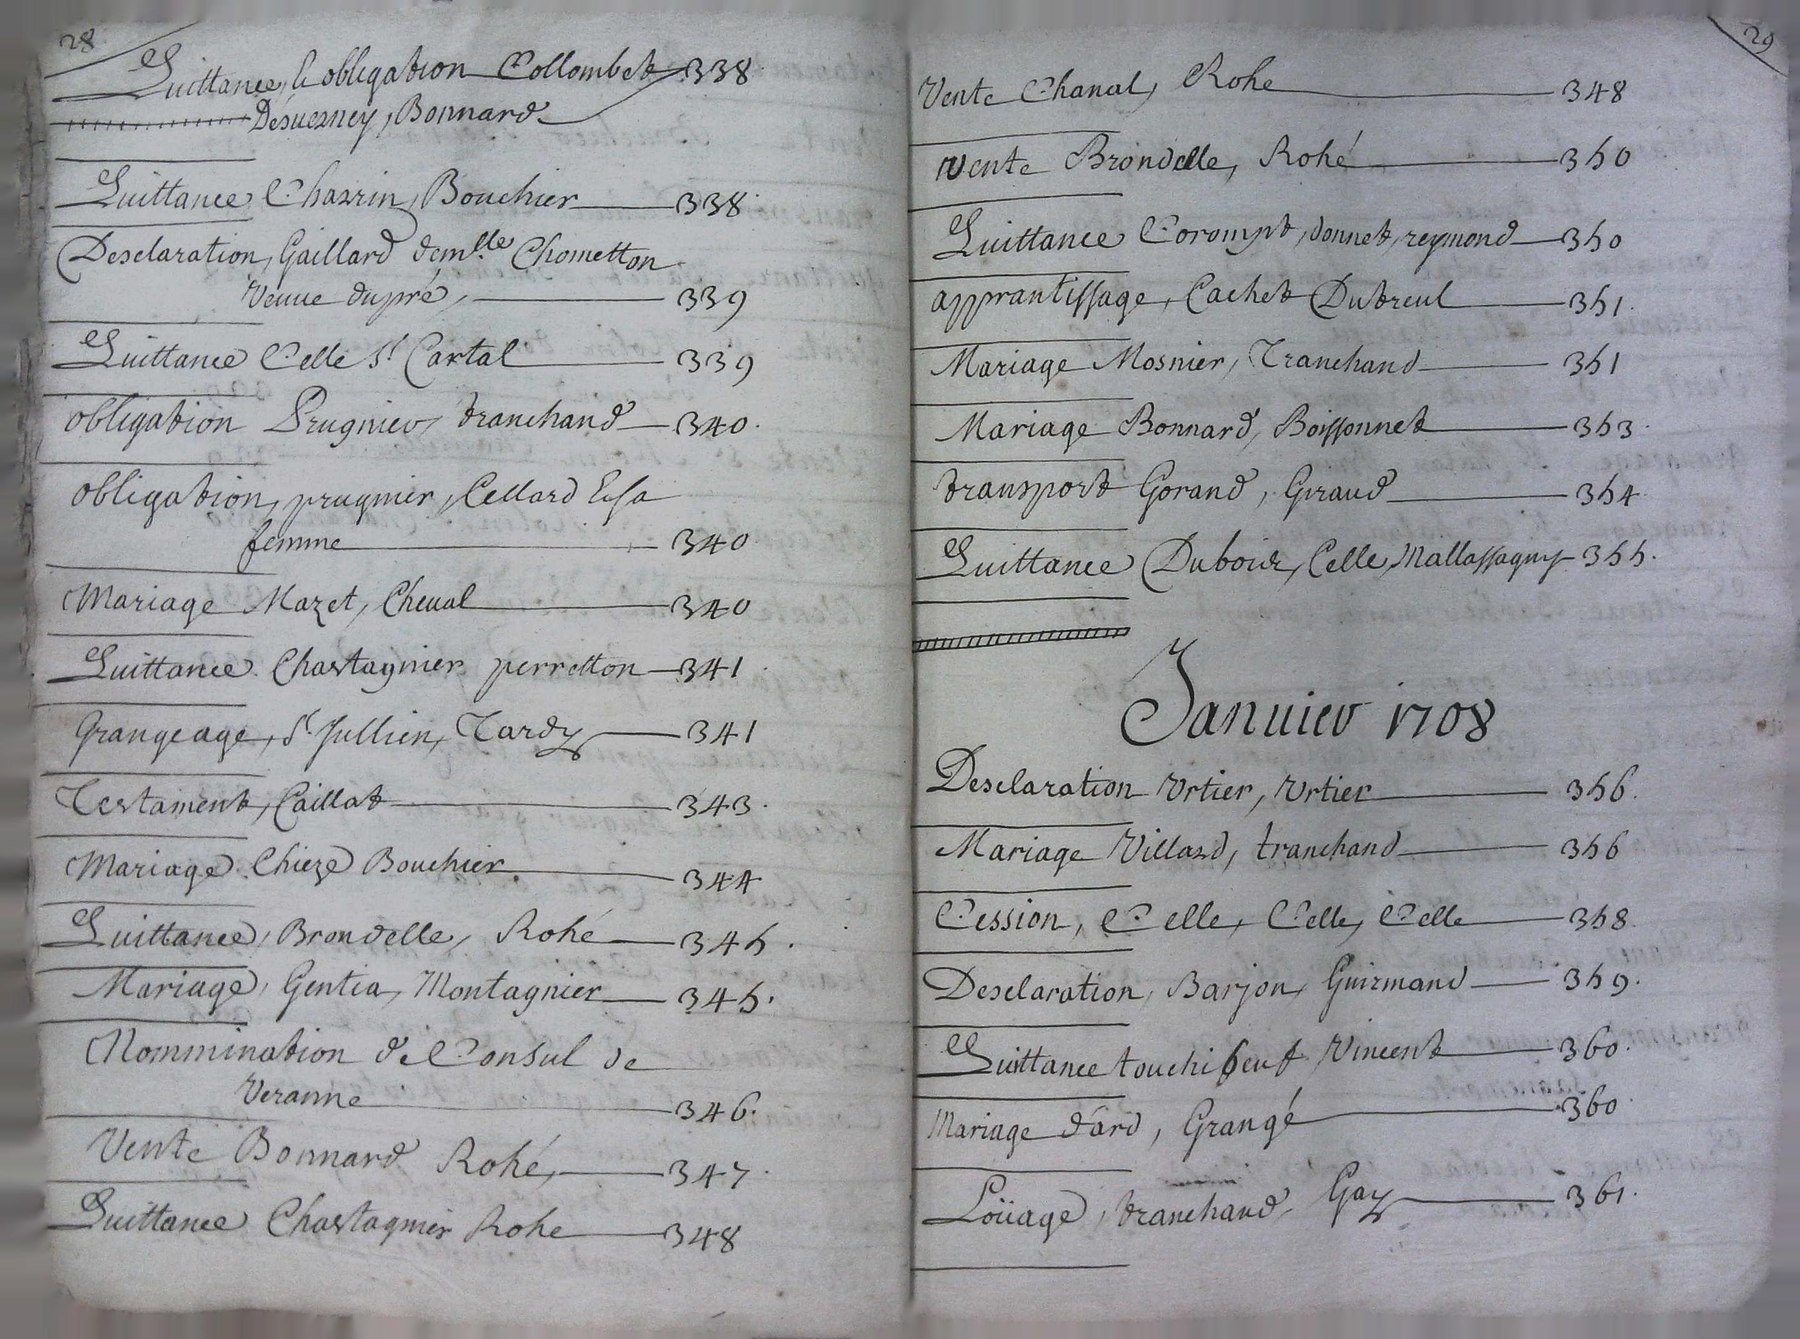 28
Quittance, & obligation Collombet 338
Desuerney, Bonnard
Quittance Chazrin, Bouchier 338
Desclaration, Gaillard dem.lle Chometton
Veuue dupré, 339
Quittance Celle St Cartal 339
obligation Prugnier, tranchand 340.
obligation, prugnier, Cellard & sa
femme 340
Mariage Mazet, Cheual 340
Quittance Chastagnier perretton 341
Grangeage, St Jullien, Tardy 341
Testament, Caillat 343.
Mariage Chieze Bouchier. 344
Quittance, Brondelle, Rohé 345.
Mariage, Gentea, Montagnier 345.
Nommination de Consul de
Veranne 346.
Vente Bonnard Rohé, 347.
Quittance Chastagnier Rohe 348
29
Vente Chanal, Rohe 348
Vente Brondelle, Rohé 350
Quittance Corompt, donnet, reymond 350
apprantissage, Cachet Dutreul 351.
Mariage Mosnier, Tranchand 351
Mariage Bonnard, Boissonnet 353.
transport Gorand, Giraud 354
Quittance Dubois, Celle, Mallassagny 355.
Januier 1708
Desclaration Vrtier, Vrtier 356.
Mariage Villard, tranchand 356
Cession, Celle, Celle, Celle 358
Desclaration, Barjon, Guirmand 359.
Quittance touchebeuf Vincent 360.
Mariage d'ard, Grangé 360
Loüage, tranchand, Gay 361.